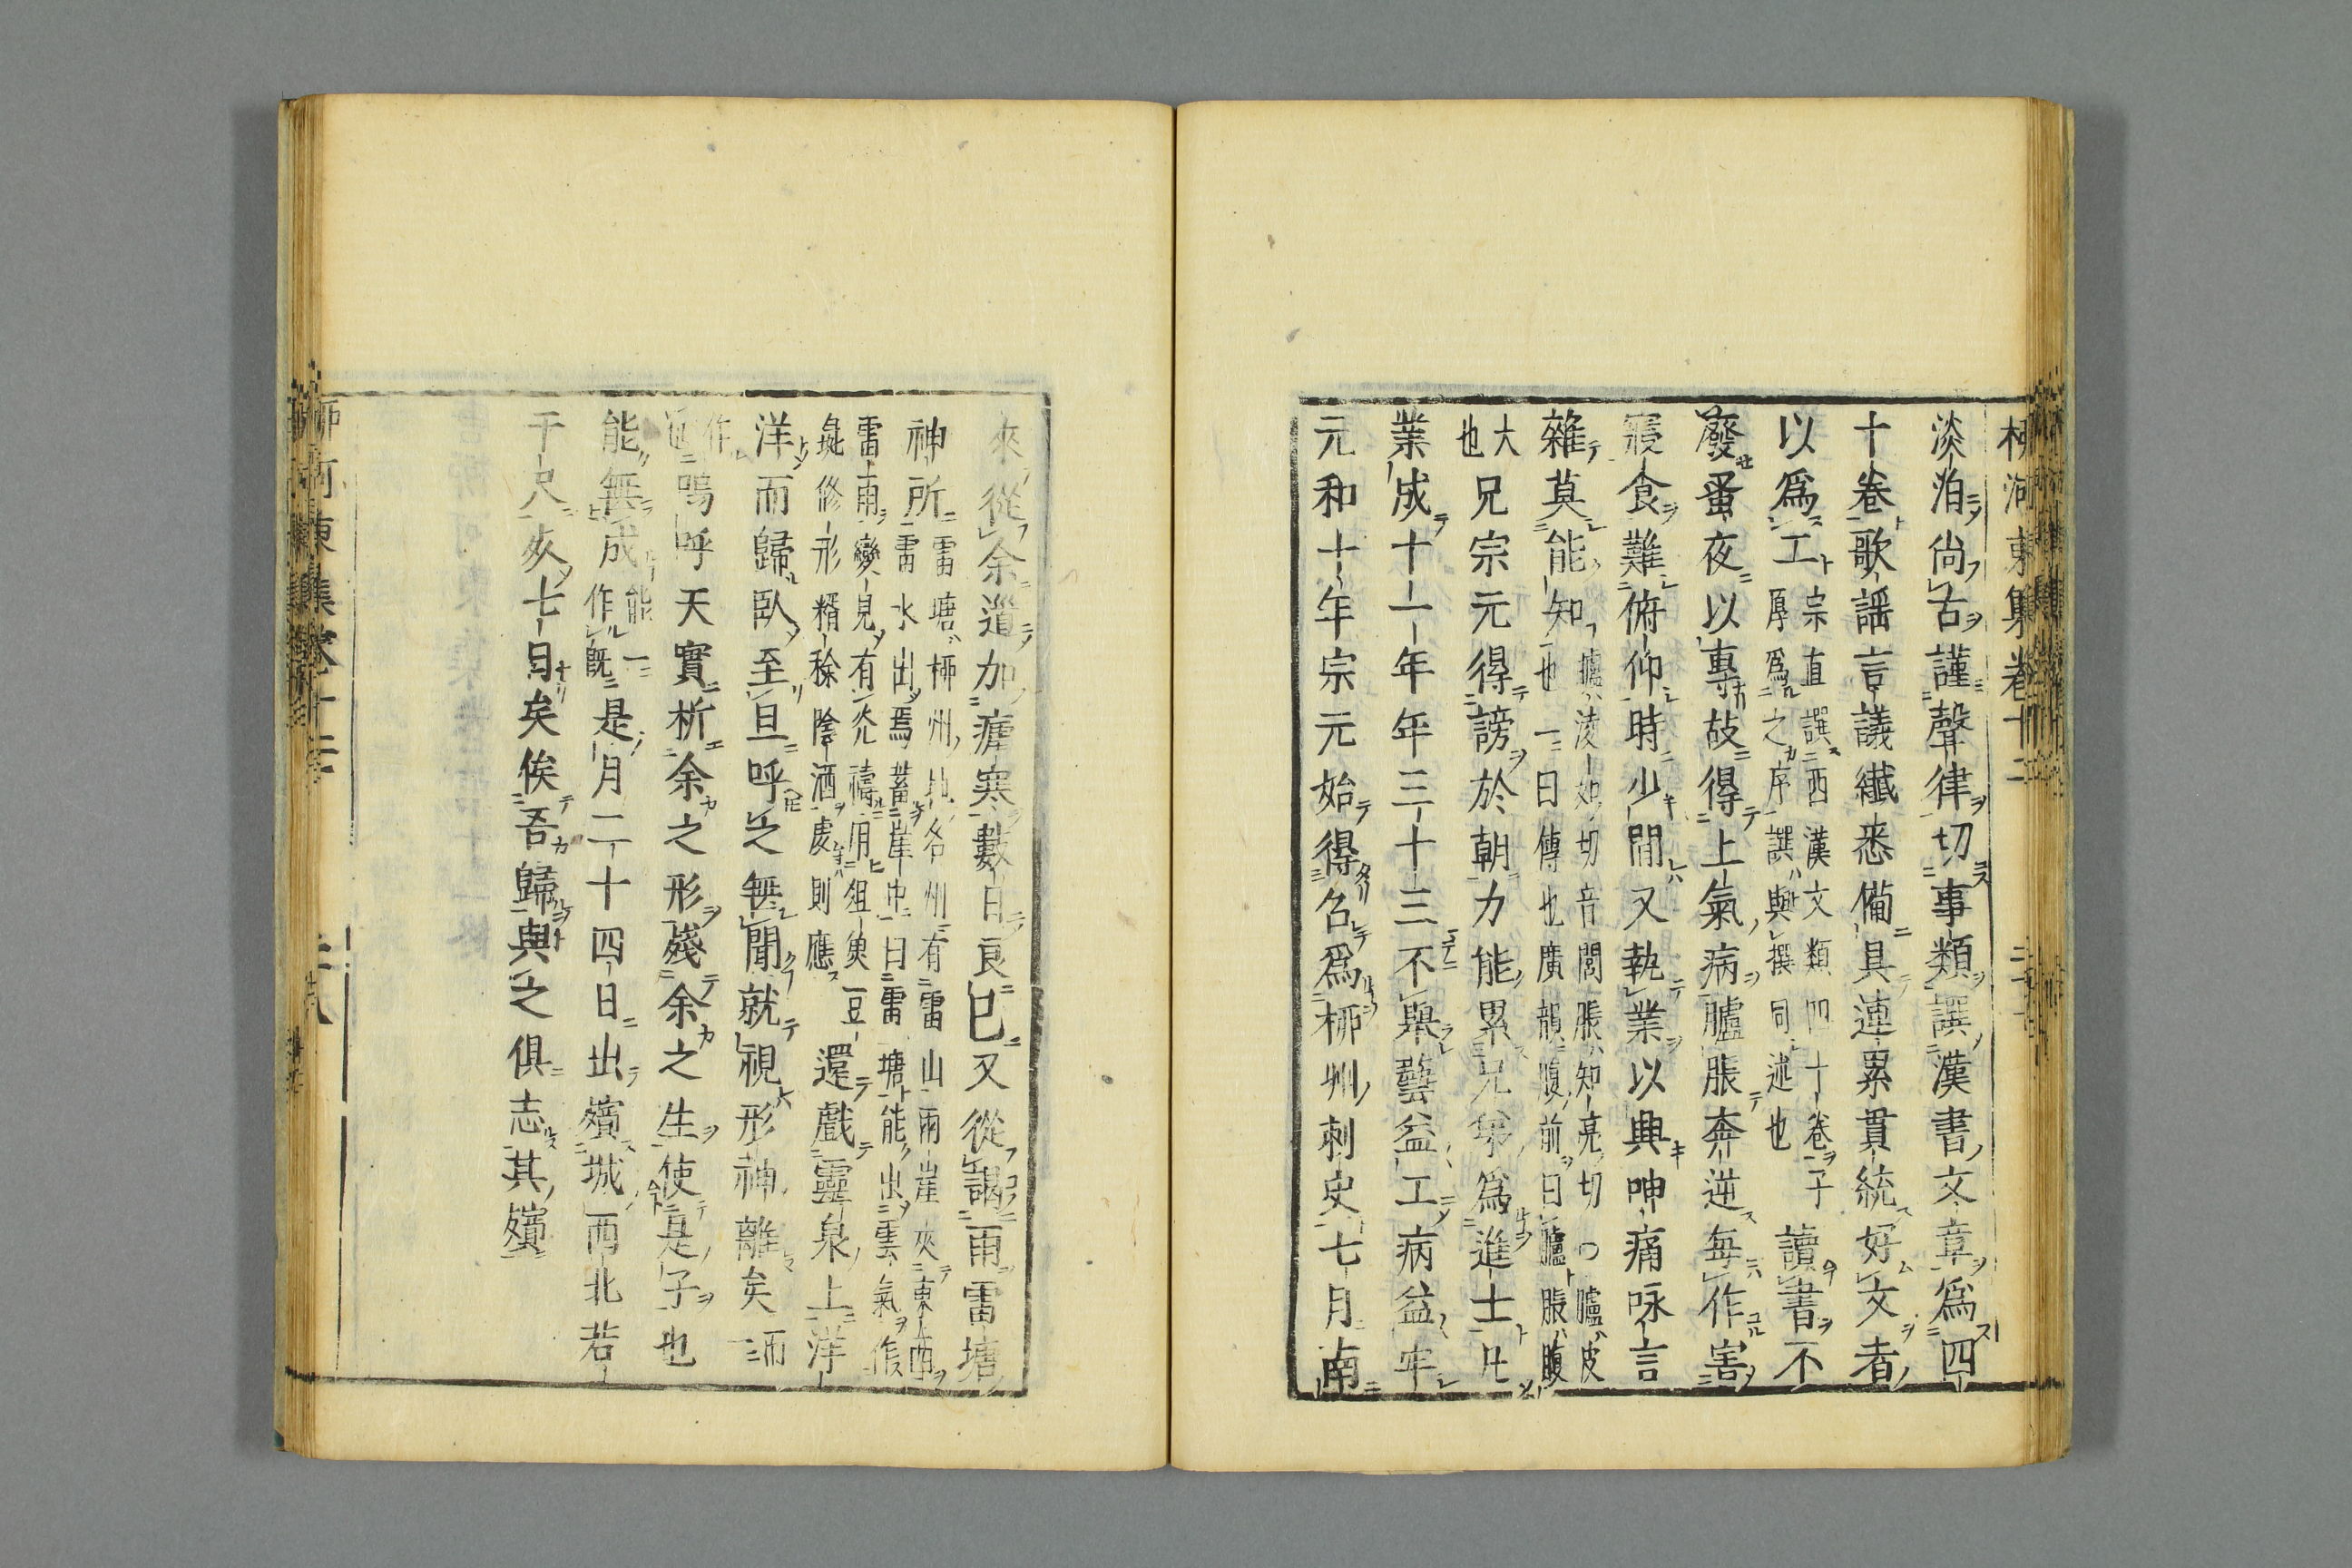 柳河東集卷十二
淡泊尙古謹聲律切事類譔漢書文章爲四
十卷歌謡言議纖悉備具連累貫統好文者
以爲工
宗直譔西漢文類四十卷子
厚爲之序譔與撰同述也
讀書不
廢蚤夜以專故得上氣病臚脹奔逆每作害
寢食難俯仰時少間又執業以興呻痛咏言
雜莫能知
臚凌如切音閭脹知亮切○臚皮
也一曰傳也廣韻腹前曰臚脹腹
大
也
兄宗元得謗於朝力能累兄弟爲進士凡
業成十一年年三十三不舉藝益工病益牢
元和十年宗元始得召爲柳州刺史七月南
來從余道加瘧寒數日良已又從謁雨雷塘
神所
雷塘柳州地名州有雷山兩崖夾東西
雷水出焉蓄崖中曰雷塘能出雲氣作
雷雨變見有光禱用俎魚豆
彘脩形糈稌陰酒虔則應
還戲靈泉上洋
洋而歸臥至旦呼之無聞就視形神離矣
一
而
作
嗚呼天實析余之形殘余之生使是子也
能無成
能一
作旣
是月二十四日出殯城西北若
干尺死七日矣俟吾歸與之俱志其殯
柳河東集卷十二